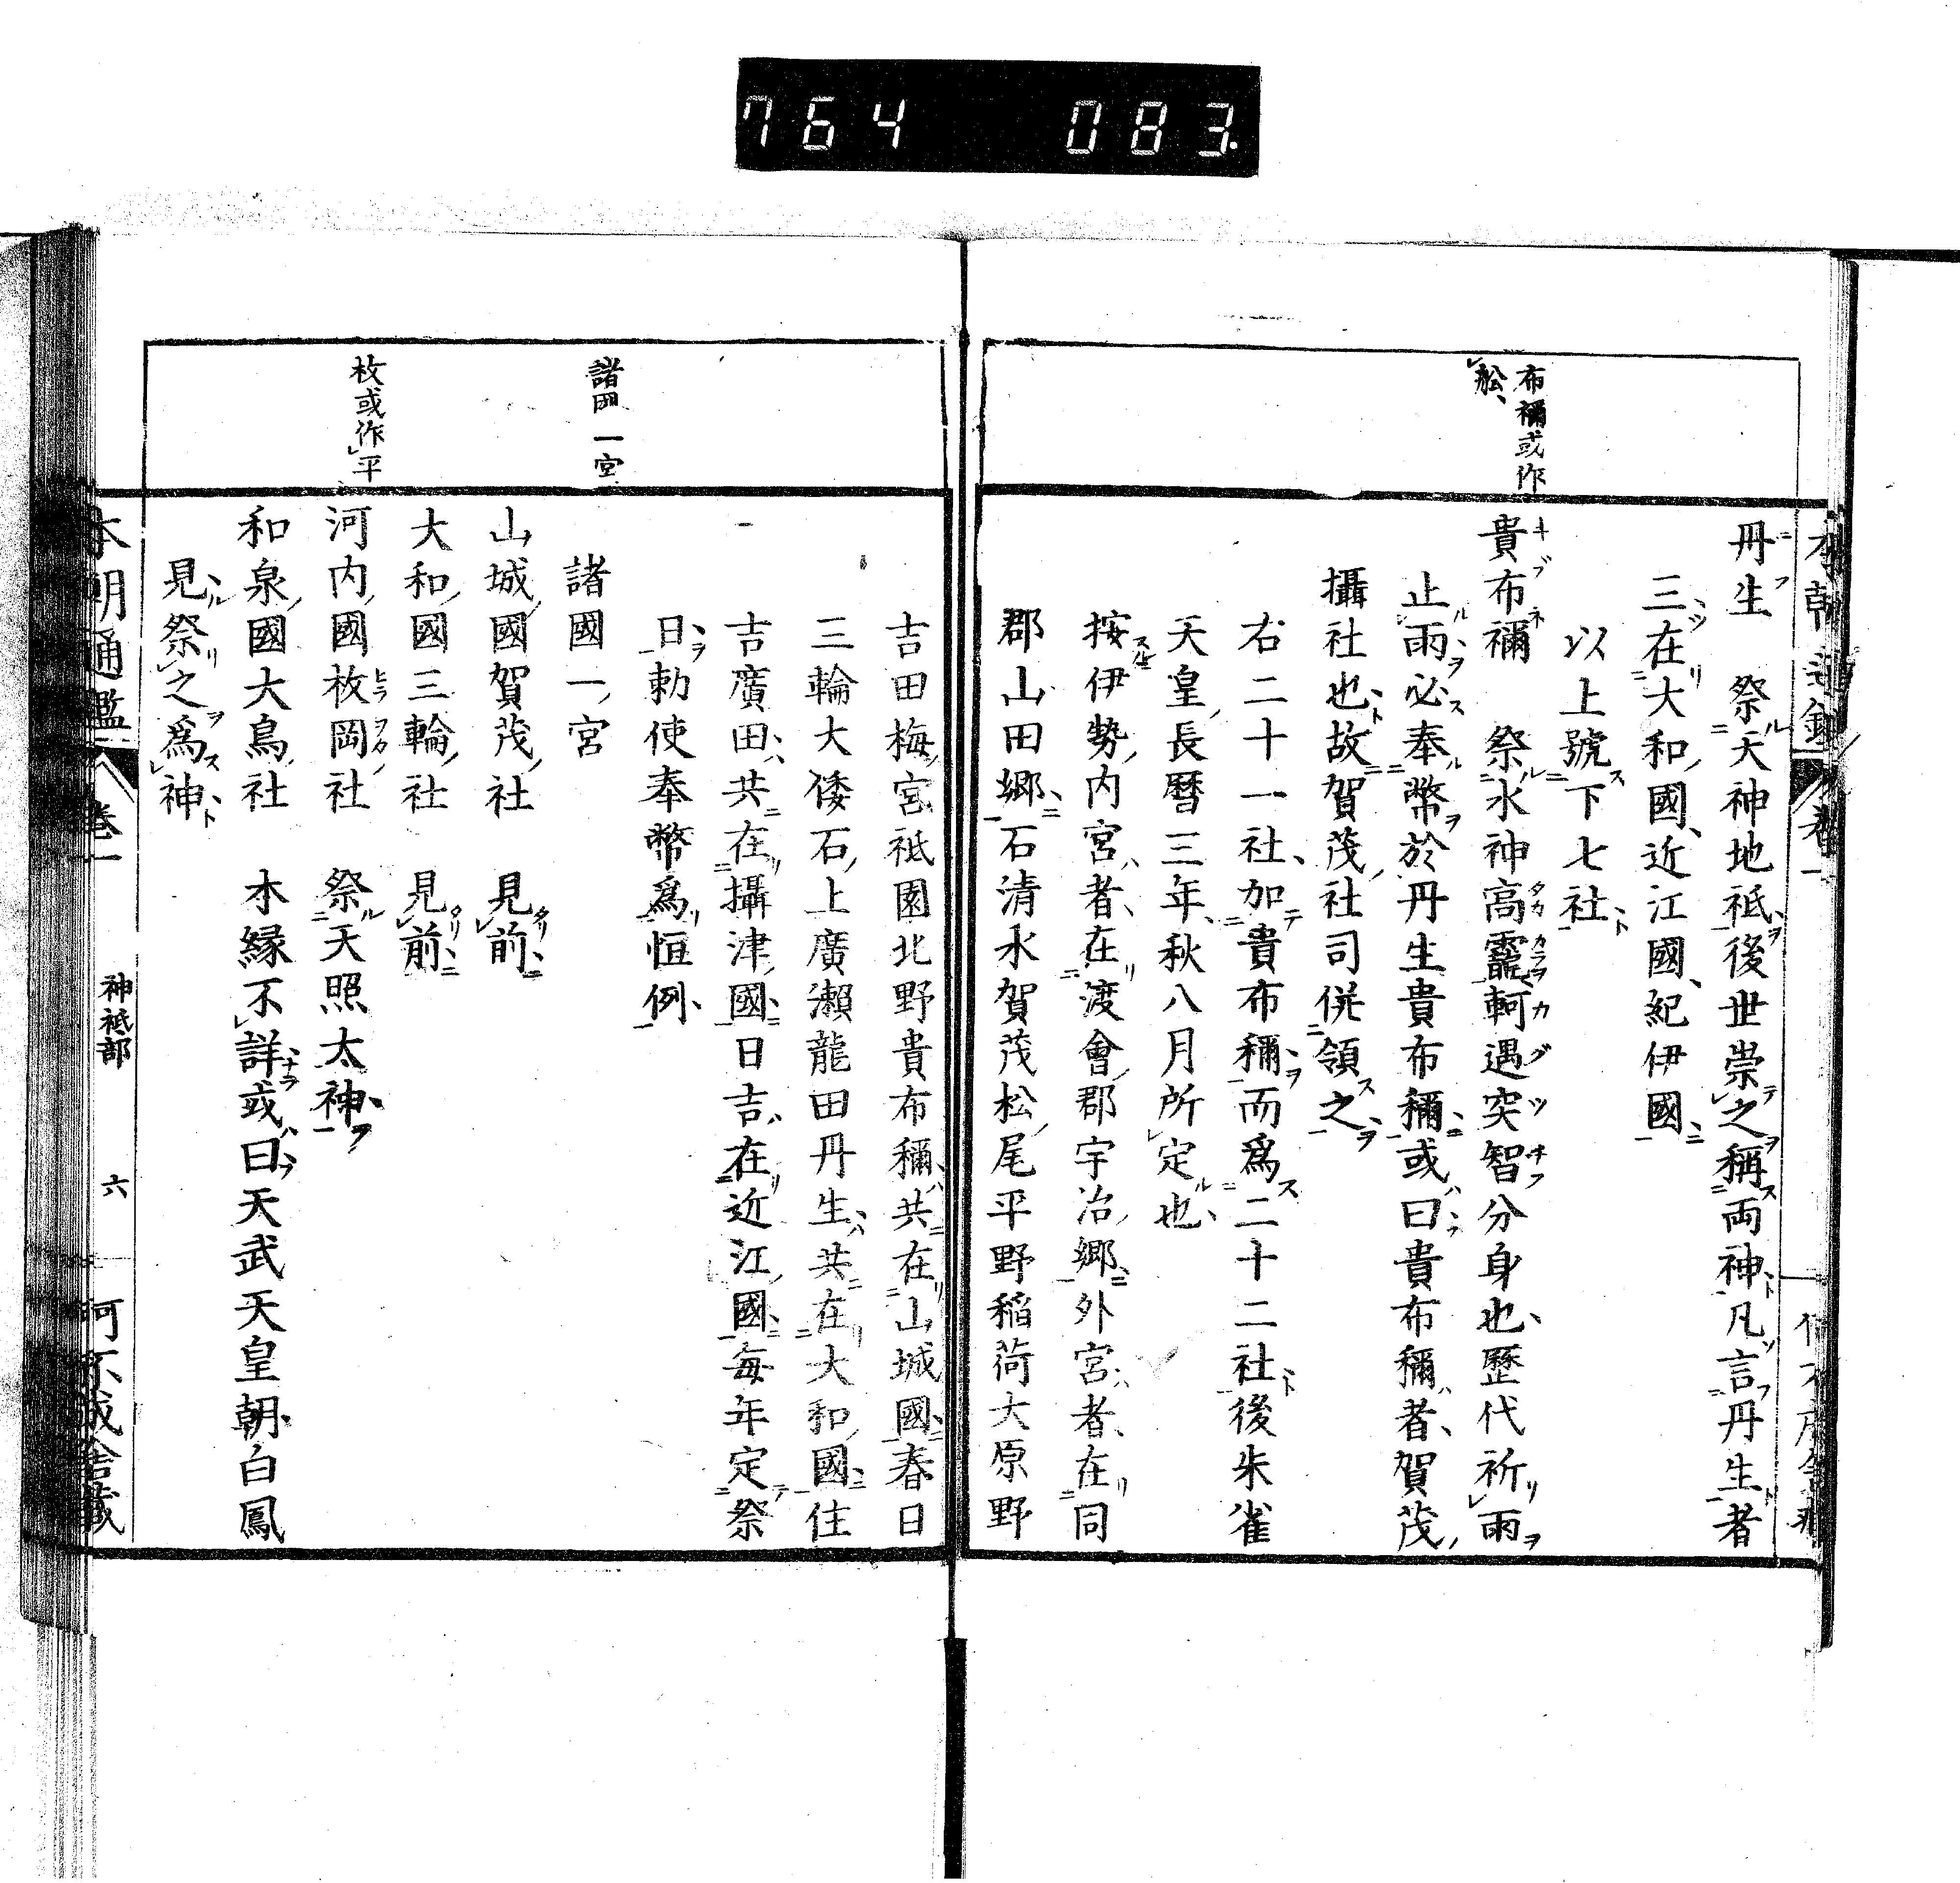 764 083.
布禰或作
舩、
丹生　祭天神地祇後世崇之稱両神凡言丹生者
三在大和國近江國紀伊國
以上號下七社
貴布禰　祭水神高龗軻遇突智分身也歴代祈雨
止雨必奉幣於丹生貴布禰或曰貴布禰者賀茂
攝社也故賀茂社司併領之
右二十一社加貴布禰而為二十二社後朱雀
天皇長暦三年秋八月所定也
按伊勢内宮者在渡會郡宇治郷外宮者在同
郡山田郷石清水賀茂松尾平野稲荷大原野
諸國一宮
枚或作平
吉田梅宮祇園北野貴布禰共在山城國春日
三輪大倭石上廣瀬龍田丹生共在大和國住
吉廣田共在攝津國日吉在近江國毎年定祭
日勅使奉幣爲恒例
諸國一宮
山城國賀茂社　見前
大和國三輪社　見前
河内國枚岡社　祭天照太神
和泉國大鳥社　本縁不詳或曰天武天皇朝白鳳
見祭之爲神
本朝通鑑　巻一　神祇部　六